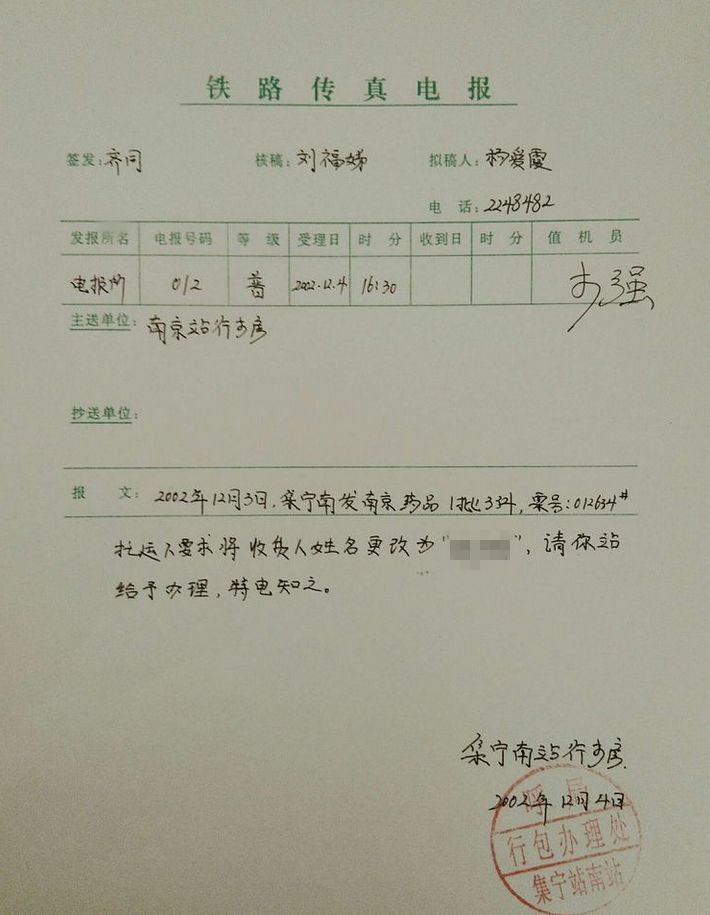 铁路传真电报
签发：齐同 核稿：刘福娣 拟稿人：杨爱霞
电话：2248482
发报所名 电报号码 等级 受理日 时分 收到日 时分 值机员
电报所 012 普 2002.12.4 16:30
主送单位：南京站行李房
抄送单位：
报文：2002年12月3日，集宁南发南京药品1批3件，票号：012634#
托运人要求将收货人姓名更改为“ ”，请你站
给予办理，特电知之。
集宁南站行李房
2002年12月4日
行包办理处
集宁站南站